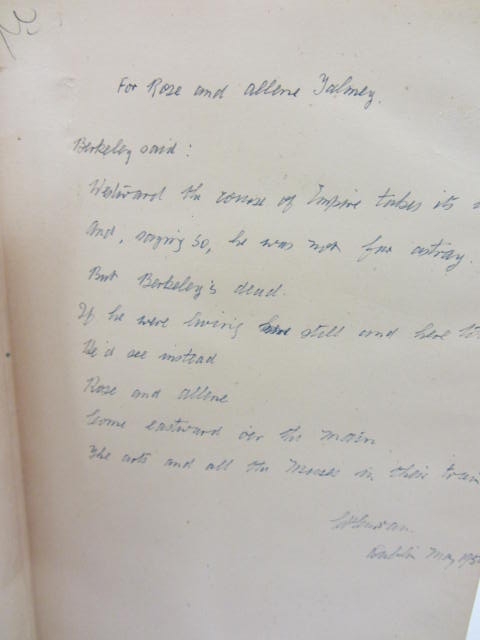 For Rose and Allene Talmey.
Berkeley said:
Westward the course of Empire takes its
And, saying so, he was not far astray.
But Berkeley's dead.
If he were living still and here
He'd see instead
Rose and Allene
Come eastward o'er the main
The arts and all the Muses in their train
Dublin May